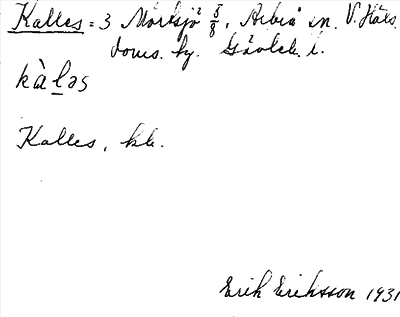 Kalles = 3 Mörtsjö 5/8, Arbrå sn. V. Häls.
doms. hg. Gävleb. l.
kàḻəs
Kalles, hb.
Erik Eriksson 1931